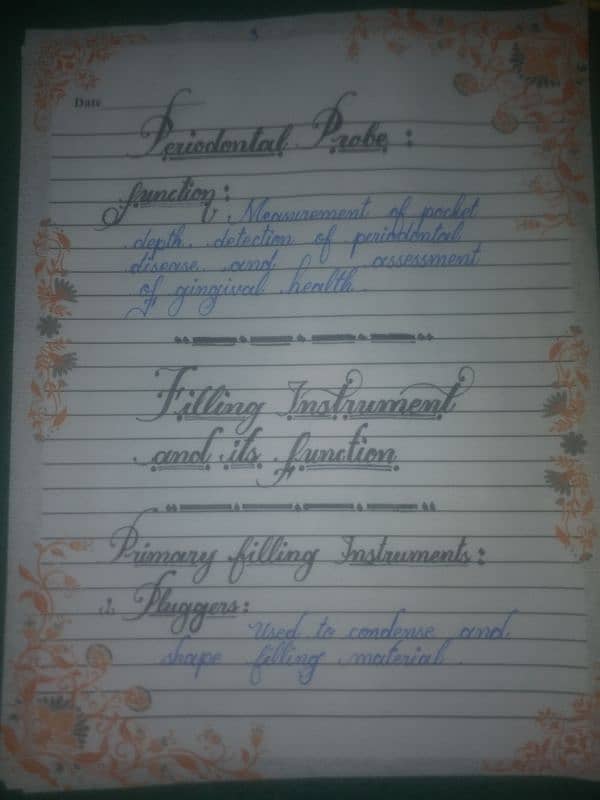 Date
Periodontal Probe :
function :
Measurement of pocket
depth, detection of periodontal
disease and assessment
of gingival health.
Filling Instrument
and its function
Primary filling Instruments :
Pluggers :
Used to condense and
shape filling material.